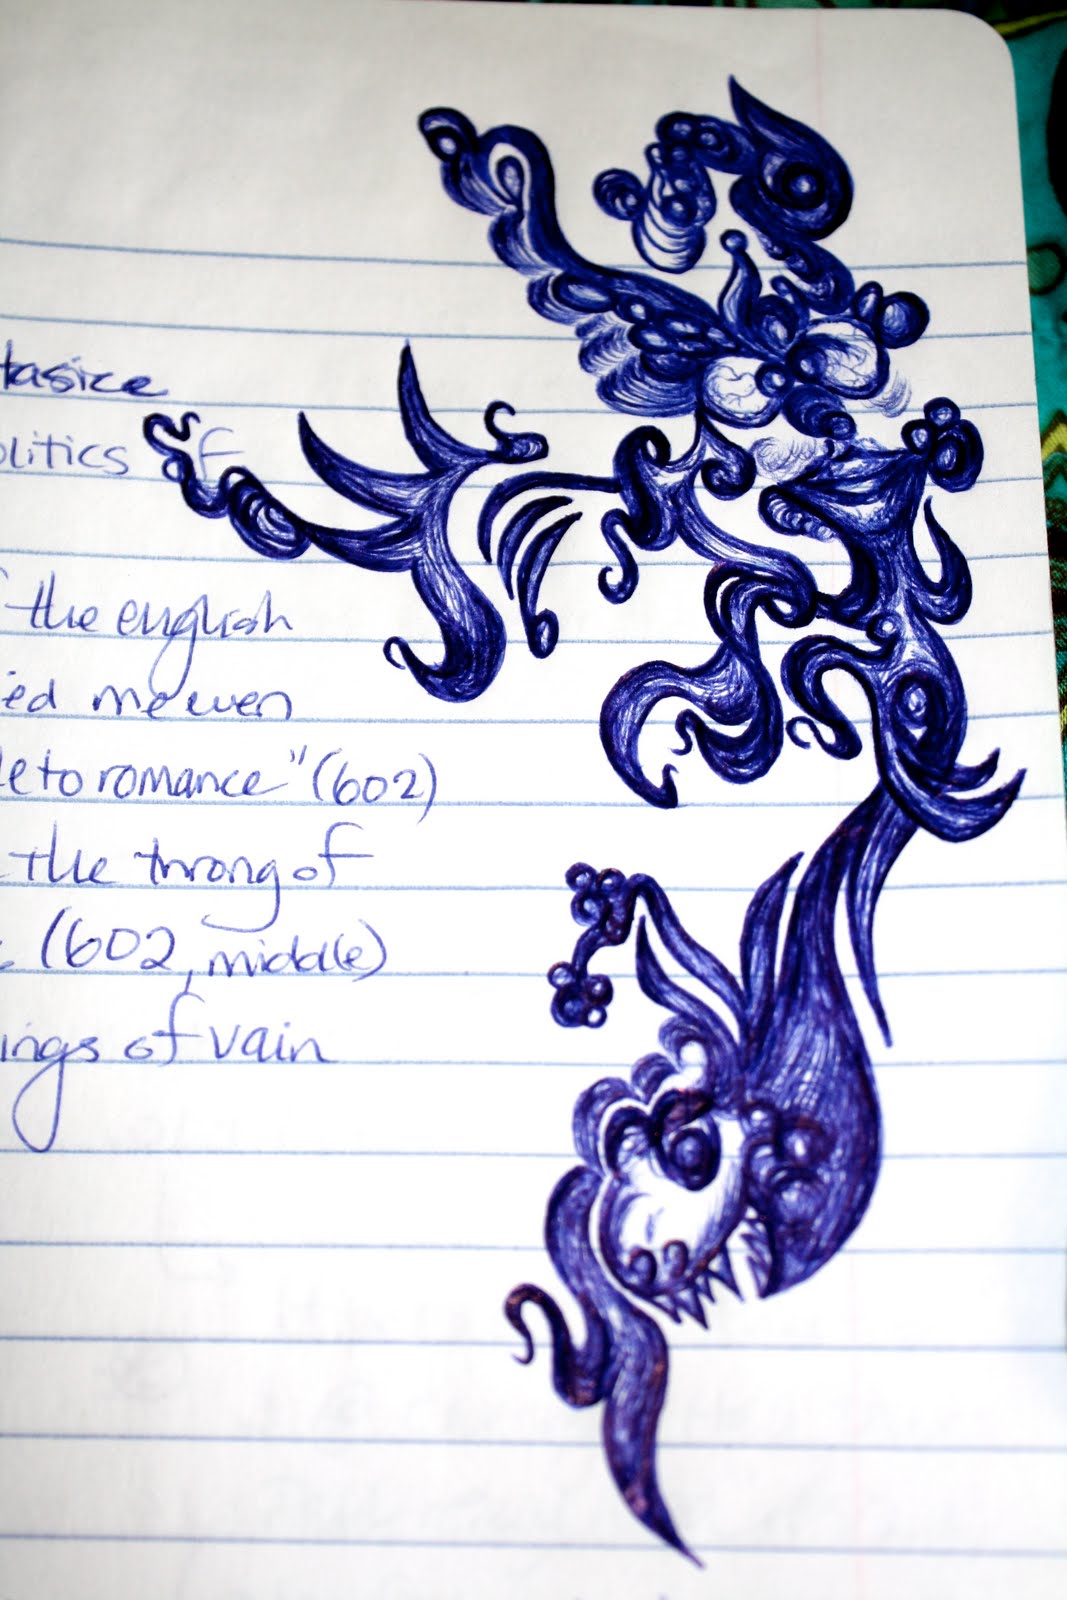 tasize
olitics of
f the english
ied me even
le to romance" (602)
the throng of
(602, middle)
ings of vain